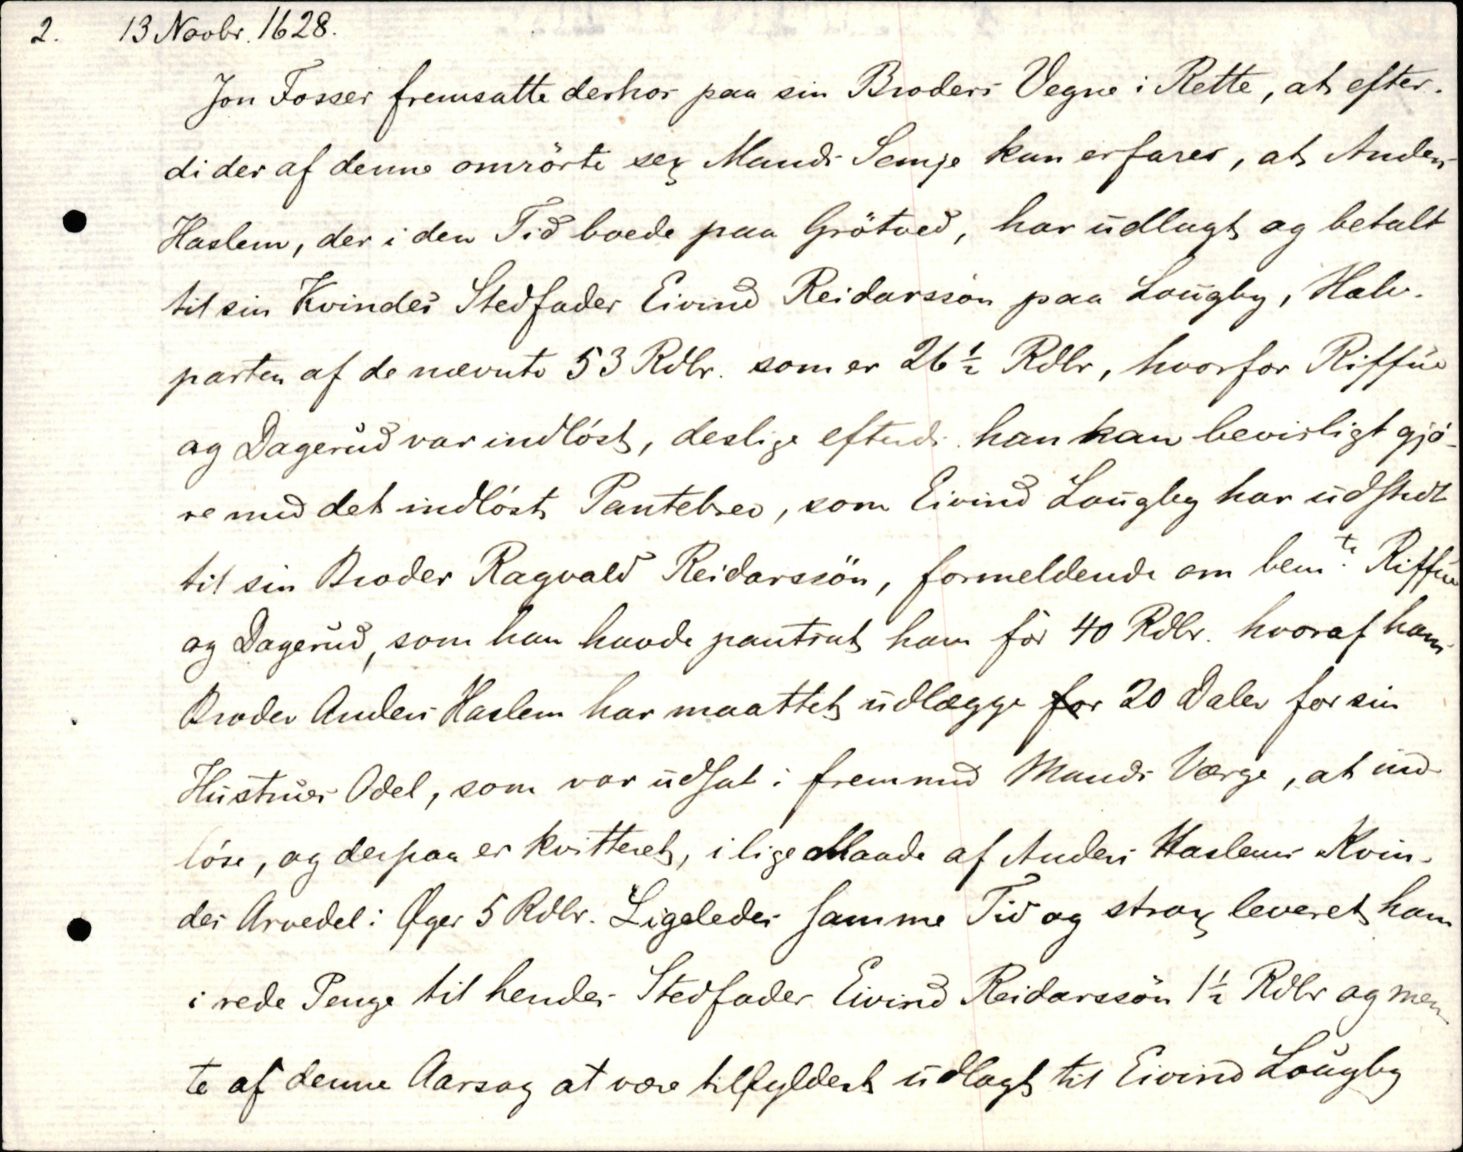 2. 13 Novbr. 1628.
Jon Fosser fremsatte derhos paa sin Broders Vegne i Rette, at efter-
di der af denne omrörte sex Mands Semje kan erfares, at Anders
Haslem, der i den Tid boede paa Grötved, har udlagt og betalt
til sin Kvindes Stedfader Eivind Reidarssön paa Laugby, Halv-
parten af de nævnte 53 Rdlr. som er 26 1/2 Rdlr, hvorfor Riffue
og Dagerud var indlöst, deslige efterdi han kan bevisligt gjö-
re med det indlöste Pantebrev, som Eivind Laugby har udstedt
til sin Broder Ragvald Reidarssön, formeldende om bem.te Riffue
og Dagerud, som han havde pantsat ham för 40 Rdlr. hvoraf hans
Broder Anders Haslem har maattet udlægge for 20 Daler for sin
Hustrues Odel, som var udsat i fremmed Mands Værge, at ind-
löse, og derpaa er kvitteret, i lige Maade af Anders Haslems Kvin-
des Arvedel i Øger 5 Rdlr. Ligeledes samme Tid og strax leveret ham
i rede Penge til hendes Stedfader Eivind Reidarssön 1 1/2 Rdlr og men-
te af denne Aarsag at være tilfyldest udlagt til Eivind Laugby